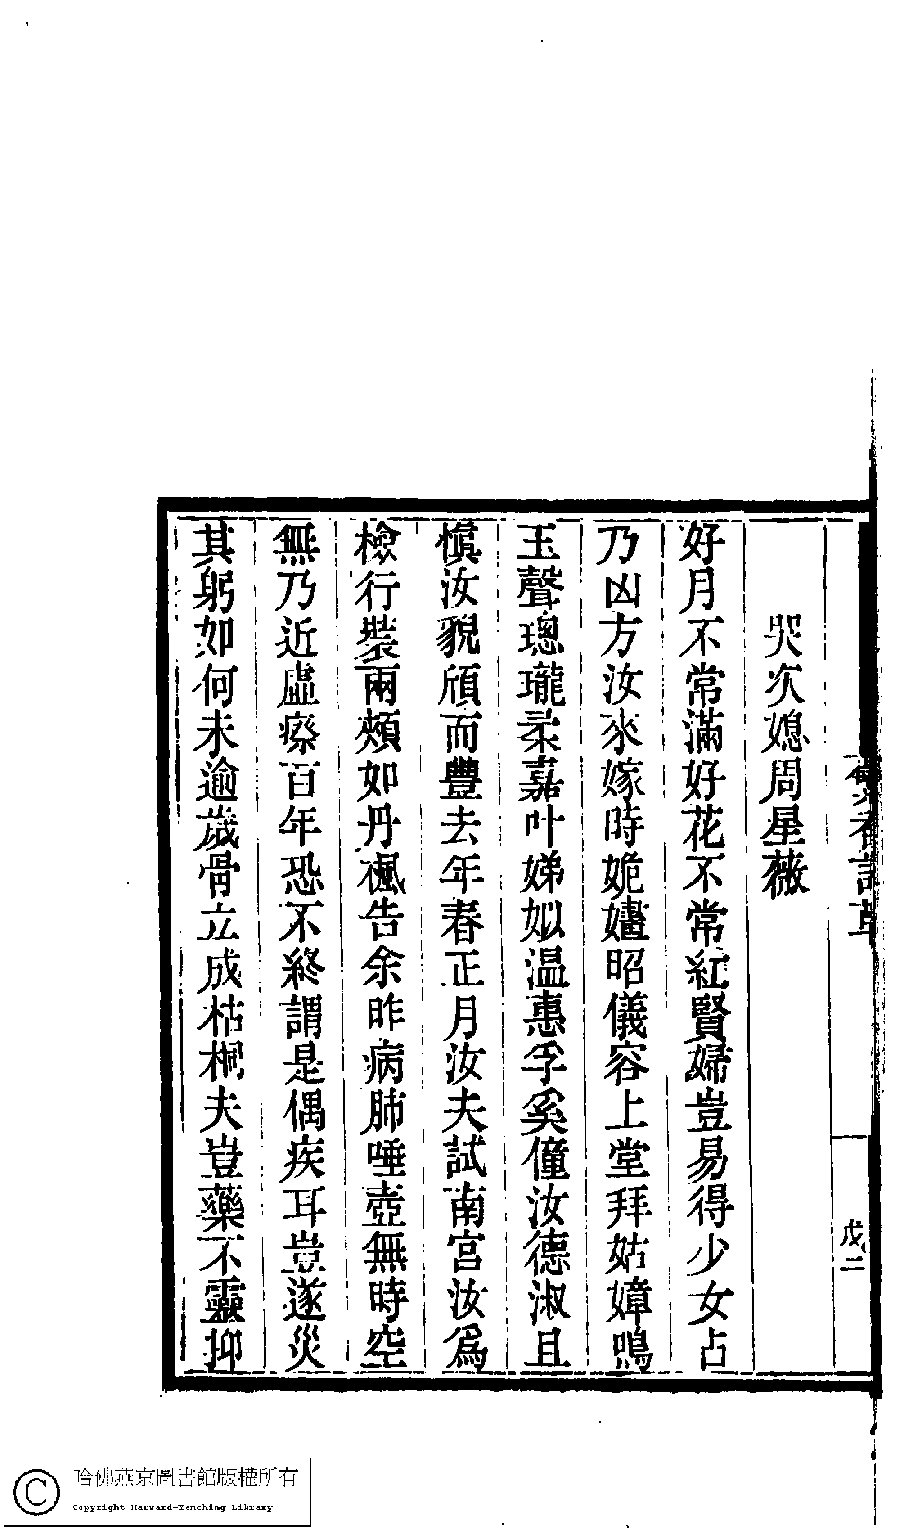 哭次媳周星薇
好月不常滿好花不常紅賢婦豈易得少女占
乃凶方汝來嫁時姽嫿昭儀容上堂拜姑嫜鳴
玉聲璁瓏柔嘉叶娣姒温惠孚奚僮汝德淑且
慎汝貌頎而豐去年春正月汝夫試南宮汝爲
檢行裝兩頰如丹楓告余昨病肺唾壺無時空
無乃近虛瘵百年恐不終謂是偶疾耳豈遂災
其躬如何未逾歲骨立成枯桐夫豈藥不靈抑
香詩草
戊二
哈佛燕京圖書館版權所有
Copyright Harvard-Yenching Library